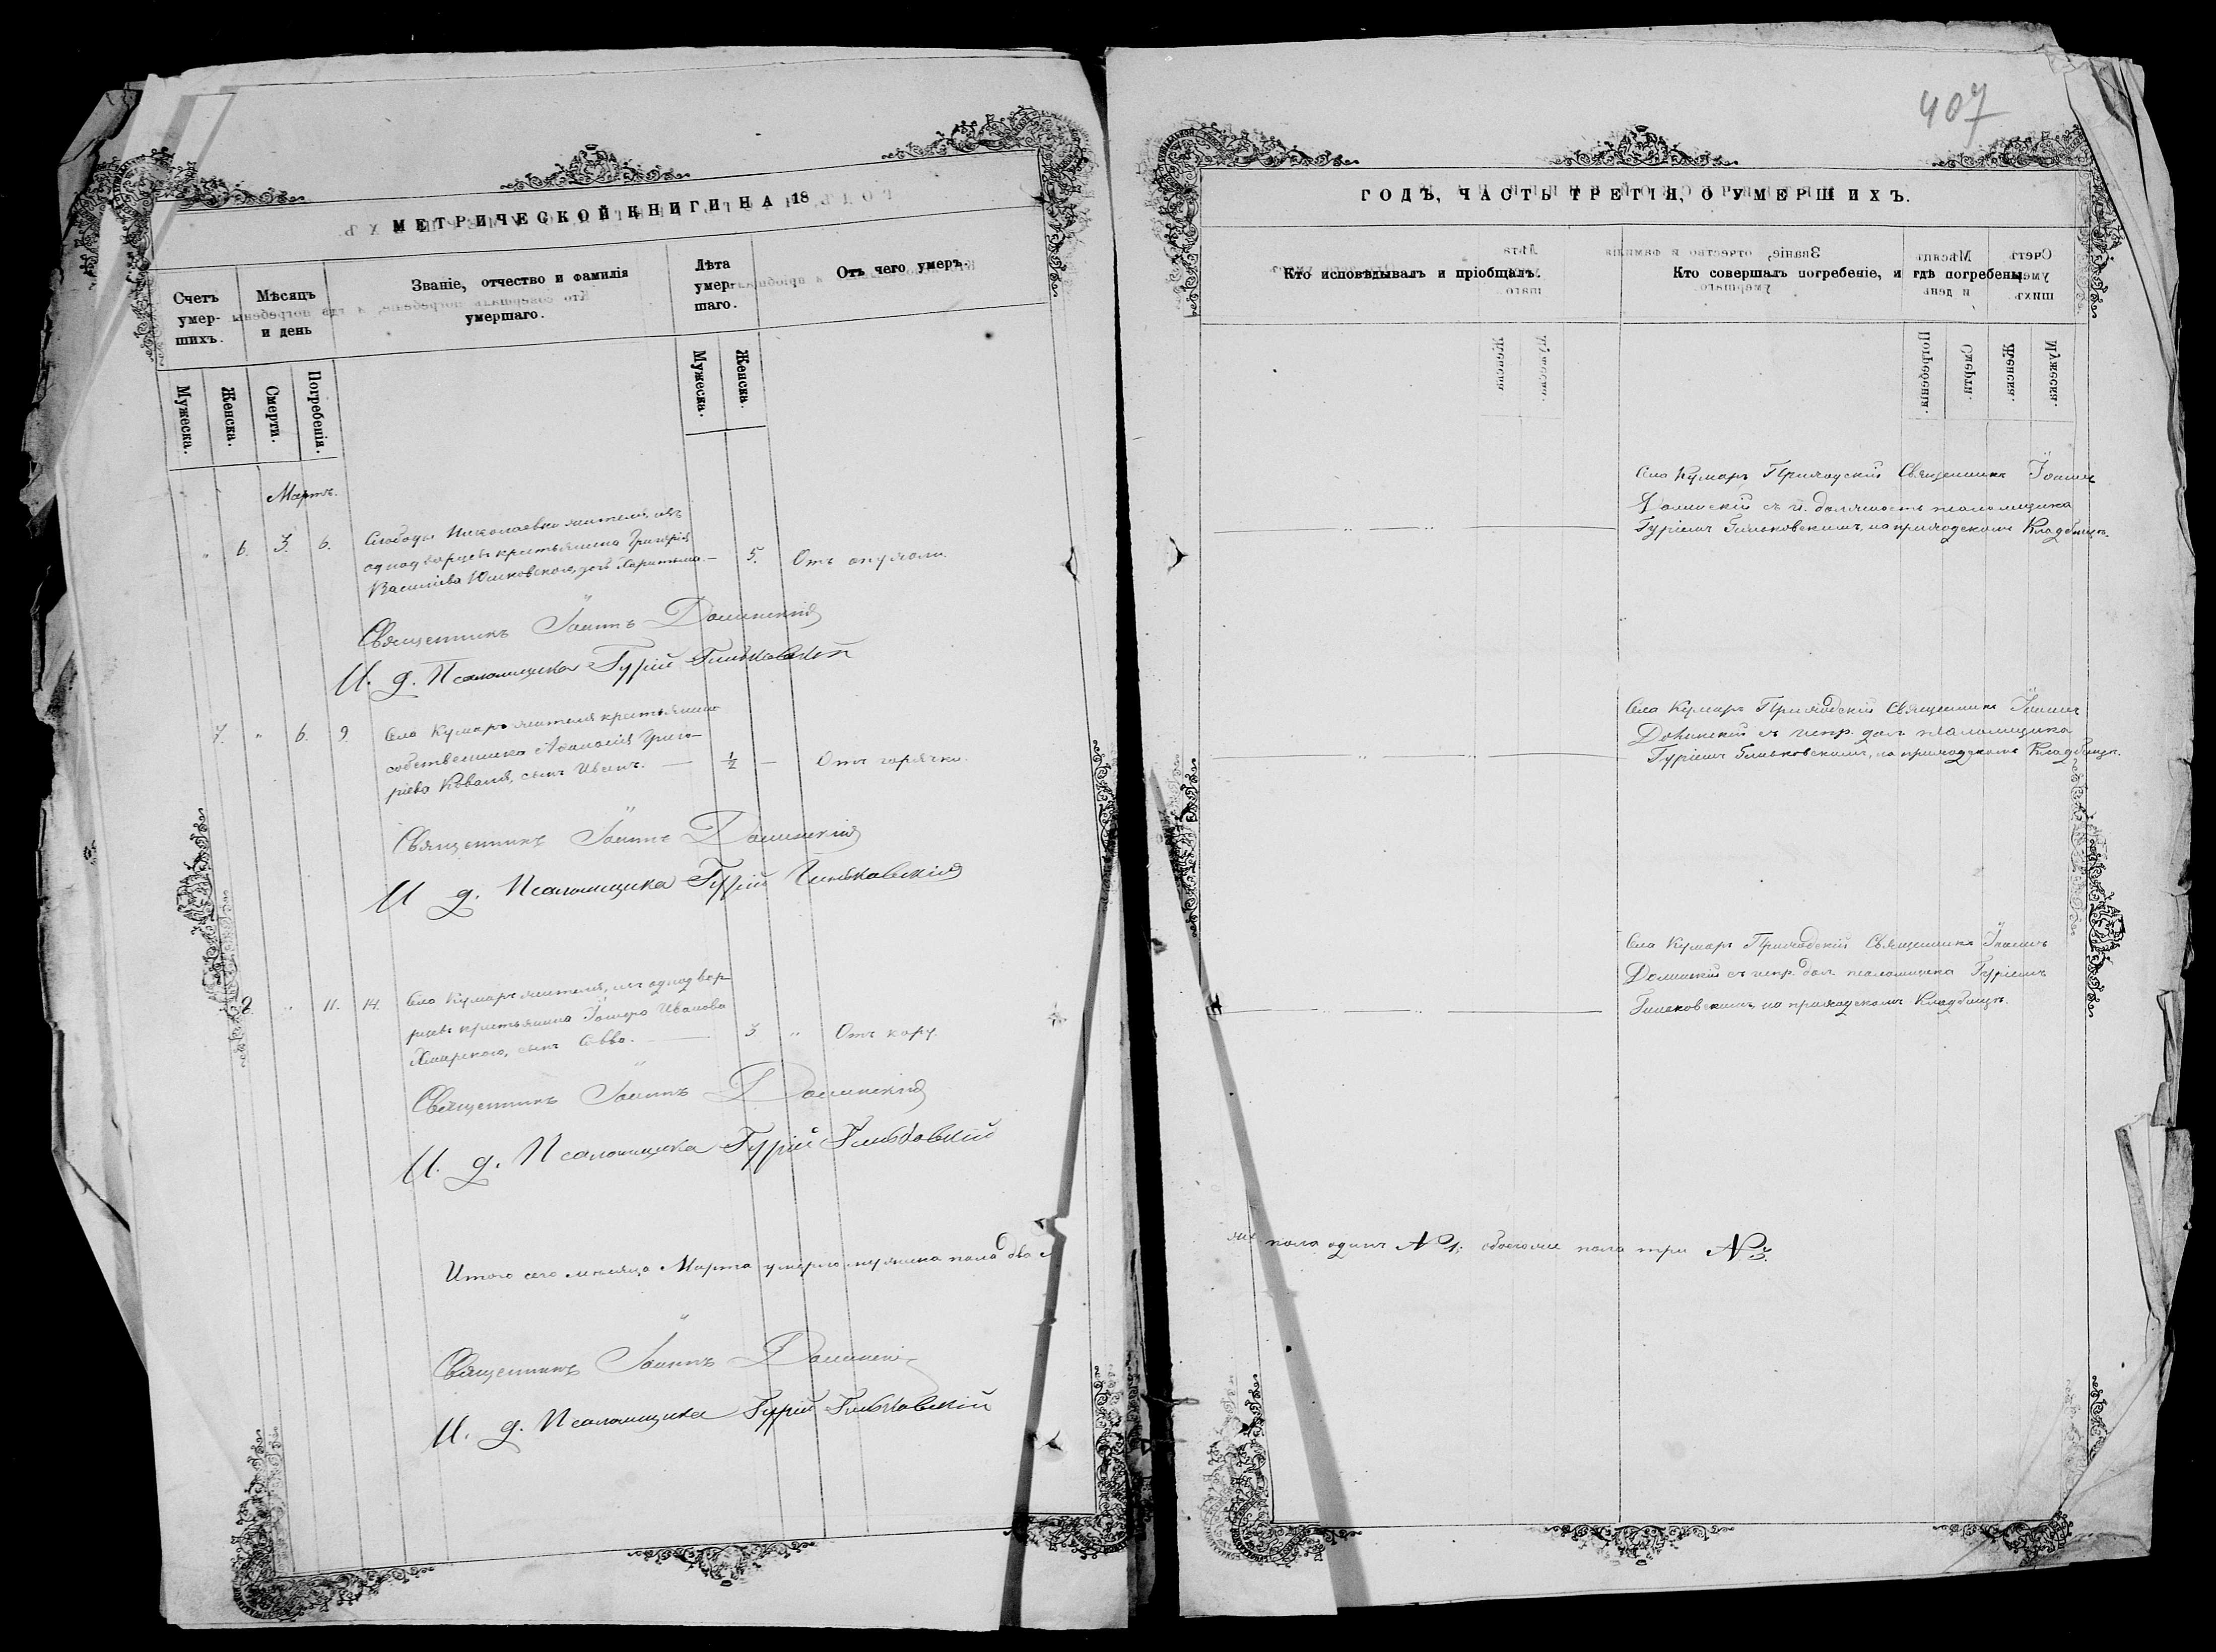 407
МЕТРИЧЕСКОЙ КНИГИ НА 18
Счетъ умер- шихъ.
Мѣсяцъ и день
Званіе, отчество и фамилія умершаго.
Лѣта умер- шаго.
Отъ чего умеръ.
Мужеска.
Женска.
Смерти.
Погребенія.
Мужеска.
Женска.
Мартъ.
" 6. 3. 6.
Слободы Николаевки жителя, изъ
однодворцевъ крестьянина Григорія
Василіева Юшковскаго, дочь Харитина. — 5. Отъ опухоли.
Священникъ Іоаннъ Долинскій
И. д. Псаломщика Гурій Гиньковскій
7. " 6. 9.
Села Кумаръ жителя крестьянина
собственника Аѳанасія Григо-
ріева Коваля, сынъ Иванъ. — ½ — Отъ горячки.
Священникъ Іоаннъ Долинскій
И д. Псаломщика Гурій Гиньковскій
8. " 11. 14.
Села Кумаръ жителя, изъ однодвор-
цевъ крестьянина Іосифа Иванова
сынъ Савва. — 3 " Отъ кору.
Священникъ Іоаннъ Долинскій
И. д. Псаломщика Гурій Гиньковскій
Итого сего мѣсяца Марта умерло мужеска пола два
Священникъ Іоаннъ Долинскій
И. д. Псаломщика Гурій Гиньковскій
ГОДЪ, ЧАСТЬ ТРЕТІЯ, О УМЕРШИХЪ.
Кто исповѣдывалъ и пріобщалъ.
Кто совершалъ погребеніе, и гдѣ погребены.
Села Кумаръ Приходскій Священникъ Іоаннъ
Долинскій съ и. должность псаломщика
Гуріемъ Гиньковскимъ, на приходскомъ Кладбищѣ.
Села Кумаръ Приходскій Священникъ Іоаннъ
Долинскій съ испр. дол. псаломщика
Гуріемъ Гиньковскимъ, на приходскомъ Кладбищѣ.
Села Кумаръ Приходскій Священникъ Іоаннъ
Долинскій съ испр. дол. псаломщика Гуріемъ
Гиньковскимъ, на приходскомъ Кладбищѣ.
пола одинъ №1; обоего пола три №3.